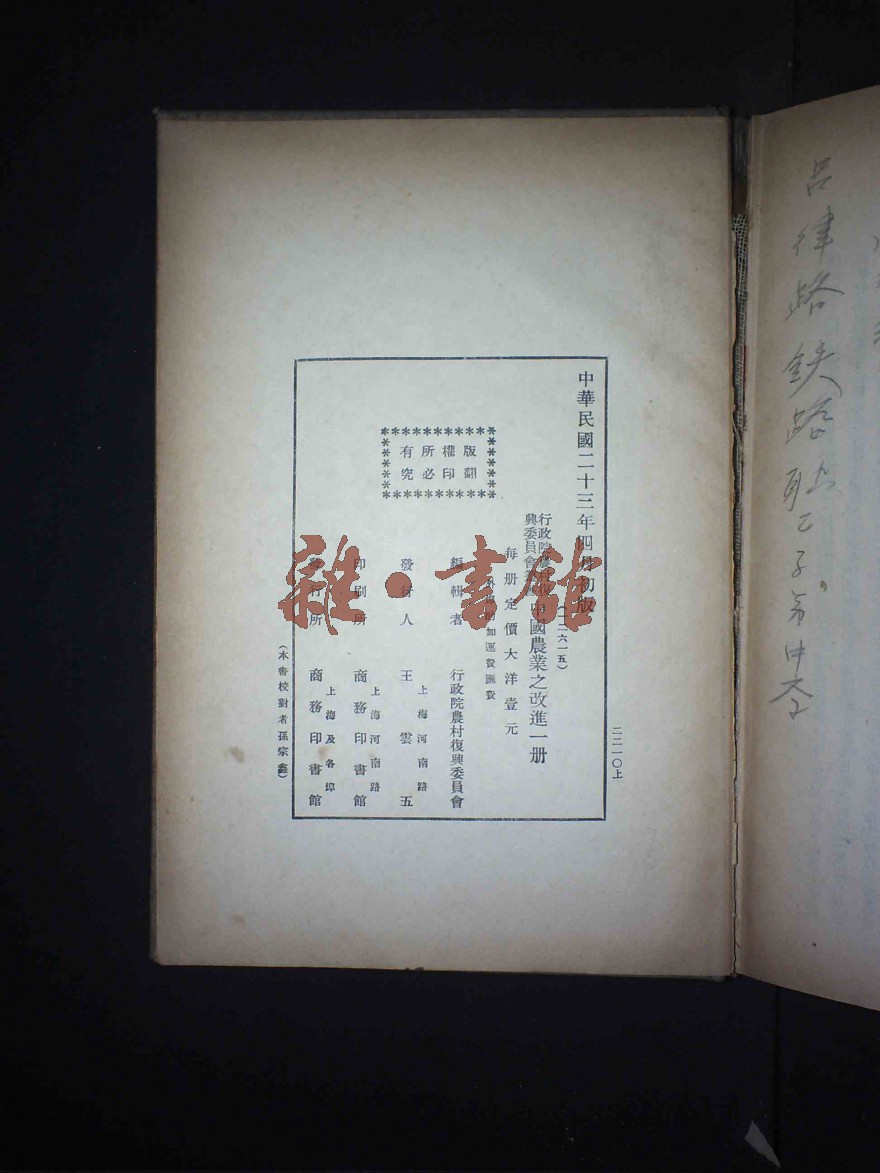 中華民國二十三年四月初版
二二一〇上
(二六一五)
行政院農村復
興委員會
中國農業之改進一册
每册定價大洋壹元
加運費匯費
版權所有
翻印必究
編輯者 行政院農村復興委員會
發行人 王雲五
上海河南路
印刷所 商務印書館
上海河南路
發行所 商務印書館
上海及各埠
(本書校對者孫宗
雜·書館
路鉄路